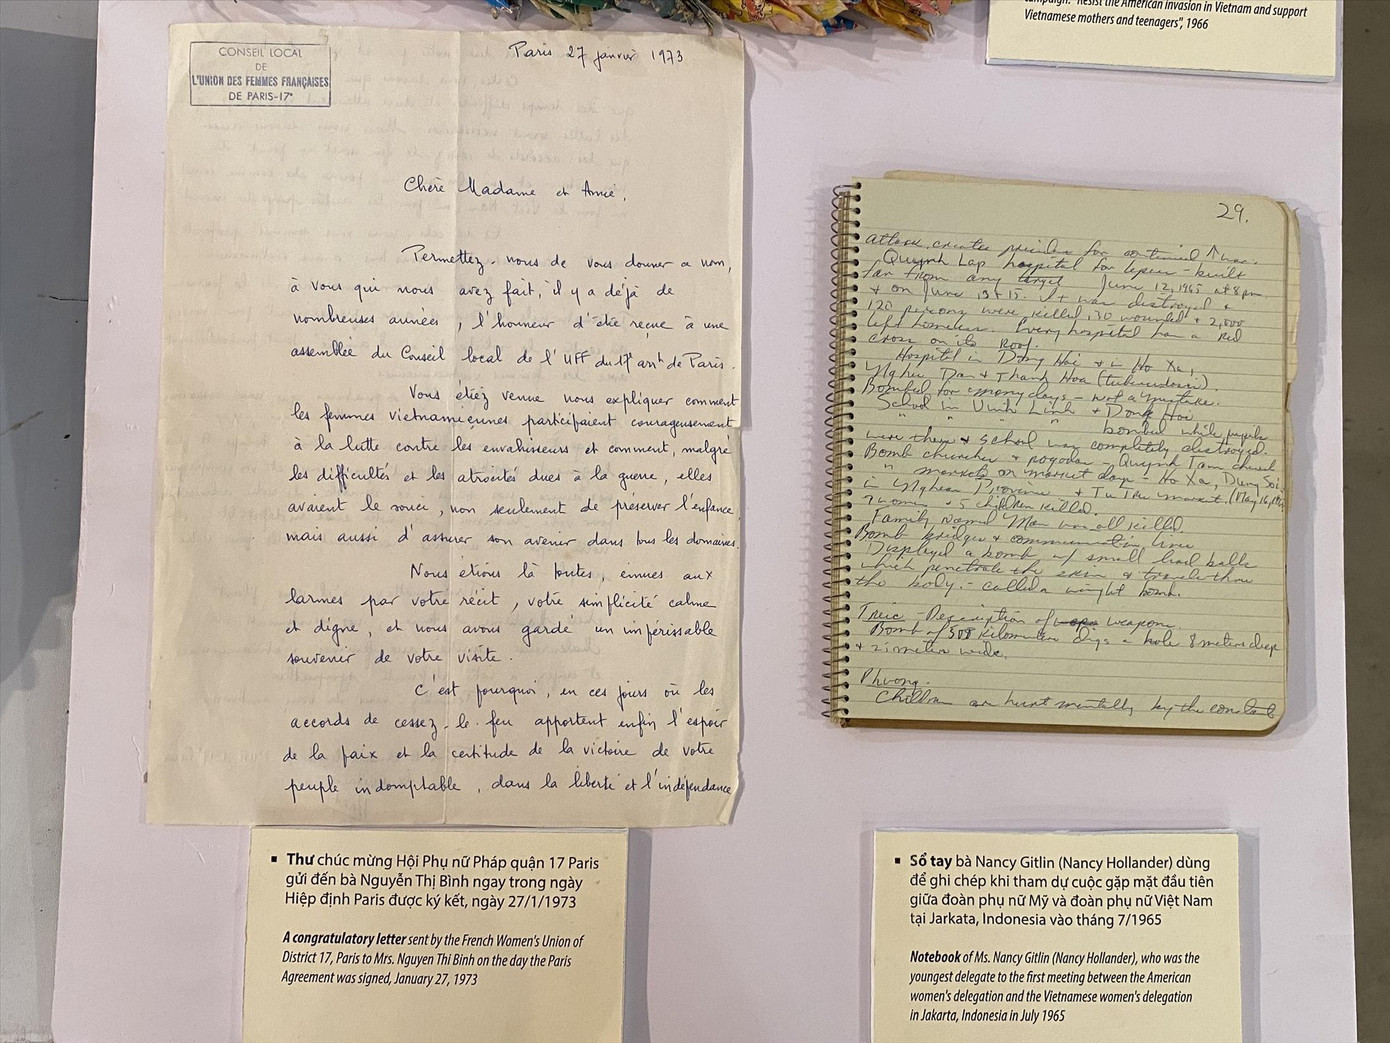 campaign: "Resist the American invasion in Vietnam and support
Vietnamese mothers and teenagers", 1966
CONSEIL LOCAL
DE
L'UNION DES FEMMES FRANÇAISES
DE PARIS-17e
Paris 27 janvier 1973
Chère Madame et Amie,
Permettez-nous de vous donner ce nom,
à vous qui nous avez fait, il y a déjà de
nombreuses années, l'honneur d'être reçue à une
assemblée du Conseil local de l'UFF du 17e arrt de Paris.
Vous étiez venue nous expliquer comment
les femmes vietnamiennes participaient courageusement
à la lutte contre les envahisseurs et comment, malgré
les difficultés et les atrocités dues à la guerre, elles
avaient le souci, non seulement de préserver l'enfance,
mais aussi d'assurer son avenir dans tous les domaines.
Nous étions là toutes, émues aux
larmes par votre récit, votre simplicité calme
et digne, et nous avons gardé un impérissable
souvenir de votre visite.
C'est pourquoi, en ces jours où les
accords de cessez-le-feu apportent enfin l'espoir
de la paix et la certitude de la victoire de votre
peuple indomptable, dans la liberté et l'indépendance
29.
attack, creates for continued ↑
Quynh Lap hospital for lepers - built
far from any target June 12, 1965 at 8 pm
+ on June 13 + 15. It was destroyed +
120 persons were killed, 30 wounded + 2,000
left homeless. Every hospital has a Red
cross on its Roof.
Hospital in Dong Hoi + in Ho Xa,
Nghia Dan + Thanh Hoa (tuberculosis)
Bombed for many days - not a mistake.
School in Vinh Linh + Dong Hoi
" " " " bombed while pupils
were there + school was completely destroyed.
Bomb churches + pagodas - Quynh Tam church
" markets on market days - Ho Xa,
in Nghean Province + market. (May 16,
9 women + 5 children killed.
Family named Man was all killed.
Bomb bridges + communication lines
Displayed a bomb w/ small lead balls
which penetrate the skin + travels thru
the body. - called a weight bomb.
Truc - Description of weapons.
Bomb of 500 Kilometers digs a hole 8 meters deep
+ 21 meters wide.
Phuong.
Children are hurt mentally by the constant
▪ Thư chúc mừng Hội Phụ nữ Pháp quận 17 Paris
gửi đến bà Nguyễn Thị Bình ngay trong ngày
Hiệp định Paris được ký kết, ngày 27/1/1973
A congratulatory letter sent by the French Women's Union of
District 17, Paris to Mrs. Nguyen Thi Binh on the day the Paris
Agreement was signed, January 27, 1973
▪ Sổ tay bà Nancy Gitlin (Nancy Hollander) dùng
để ghi chép khi tham dự cuộc gặp mặt đầu tiên
giữa đoàn phụ nữ Mỹ và đoàn phụ nữ Việt Nam
tại Jarkata, Indonesia vào tháng 7/1965
Notebook of Ms. Nancy Gitlin (Nancy Hollander), who was the
youngest delegate to the first meeting between the American
women's delegation and the Vietnamese women's delegation
in Jakarta, Indonesia in July 1965